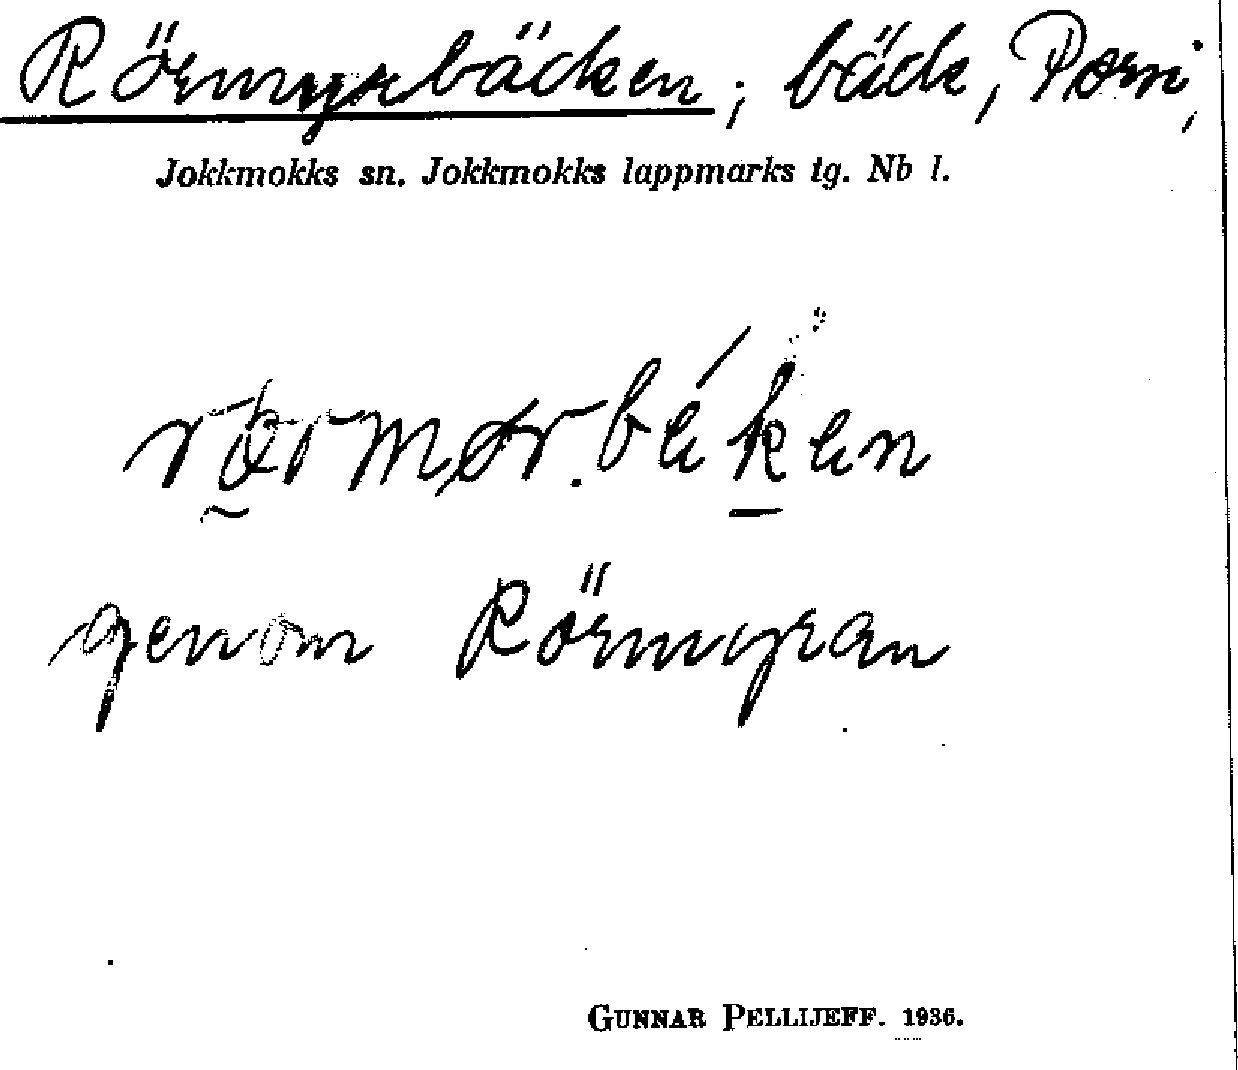 Rörmyrbäcken; bäck, Porsi,
Jokkmokks sn. Jokkmokks lappmarks tg. Nb l.
genom Rörmyran
GUNNAR PELLIJEFF. 1936.